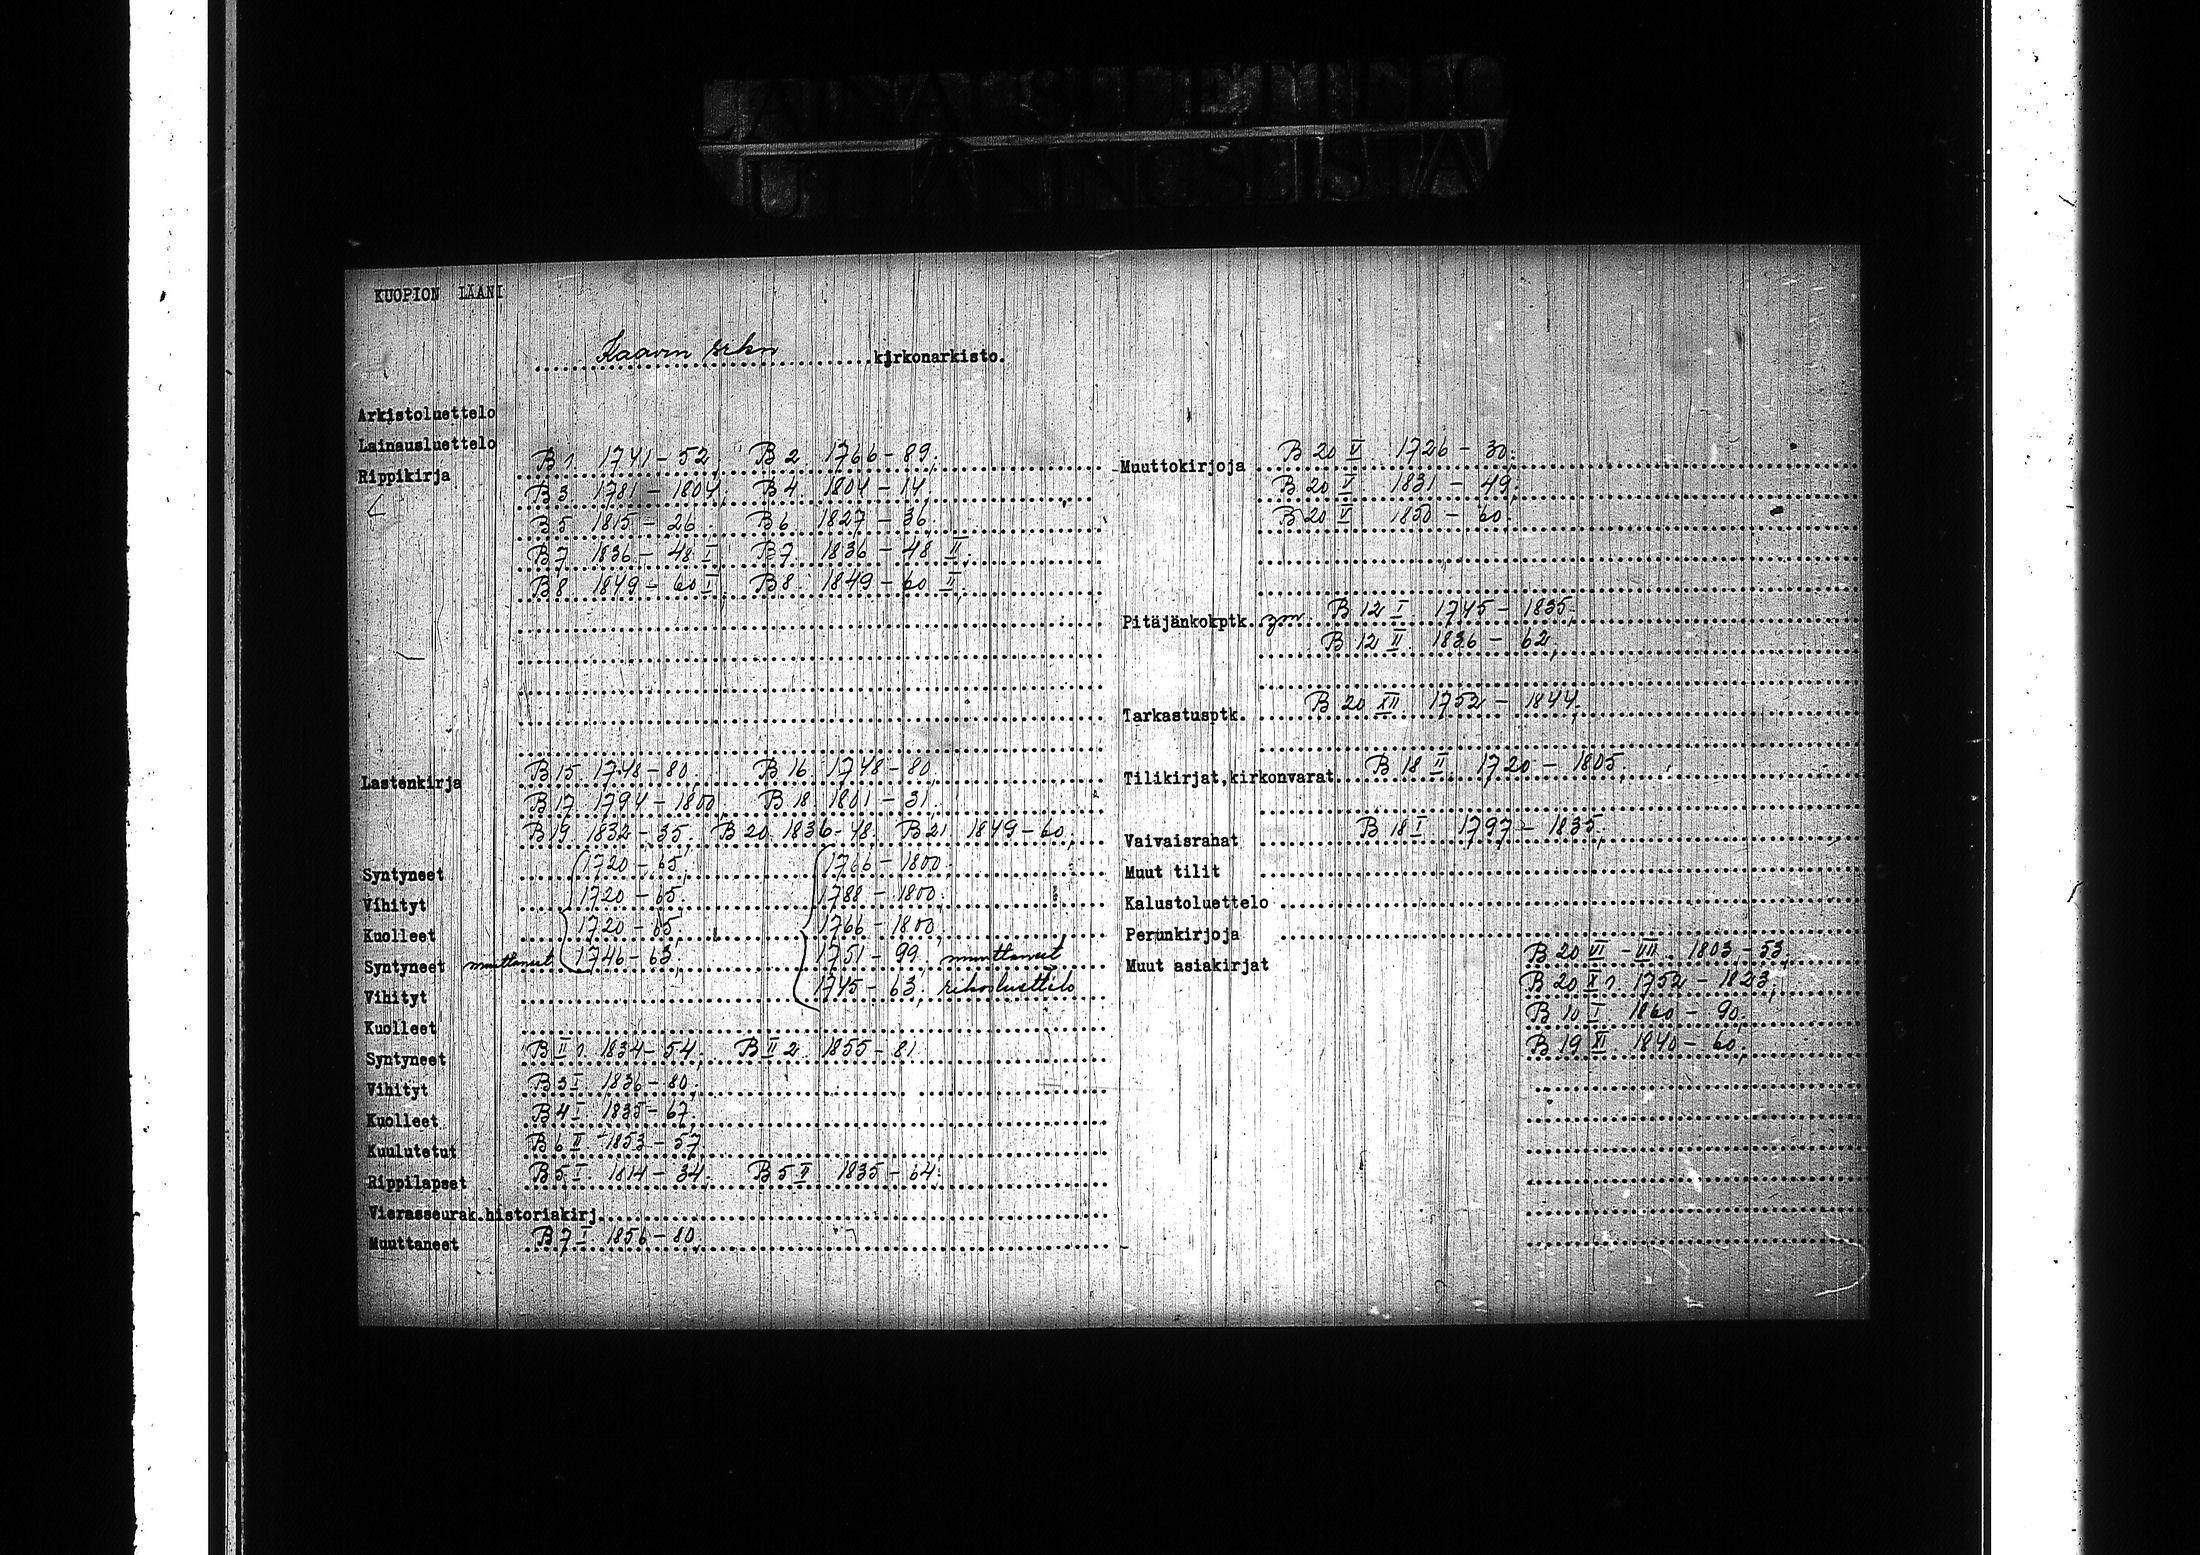 LAINAUSLUETTELO
UTLÅNINGSLISTA
KUOPION LÄÄNI
Kaavin srkn kirkonarkisto.
Arkistoluettelo
Lainausluettelo
Rippikirja B 1. 1741-52, B 2. 1766-89,
B 3. 1781-1804, B 4. 1804-14,
B 5. 1815-26. B 6. 1827-36,
B 7. 1836-48 I, B 7. 1836-48 II,
B 8. 1849-60 I, B 8. 1849-60 II,
Lastenkirja B 15. 1748-80, B 16. 1748-80,
B 17. 1794-1800, B 18. 1801-31.
B 19. 1832-35. B 20. 1836-48. B 21. 1849-60,
Syntyneet 1720-65, 1766-1800,
Vihityt 1720-65. 1788-1800,
Kuolleet 1720-65, 1766-1800,
Syntyneet muuttaneet 1746-63, 1751-99 muuttaneet
Vihityt 1745-63, rikosluettelo
Kuolleet
Syntyneet B II 1. 1834-54, B II 2. 1855-81.
Vihityt B 3 I. 1836-80,
Kuolleet B 4 I. 1835-67,
Kuulutetut B 6 II 1853-57.
Rippilapset B 5 I. 1814-34. B 5 II 1835-64.
Vierasseurak.historiakirj.
Muuttaneet B 7 I 1856-80,
Muuttokirjoja B 20 V. 1726-30.
B 20 V. 1831-49.
B 20 V 1850-60.
Pitäjänkokptk. ym. B 12 I 1745-1835,
B 12 II. 1836-62,
Tarkastusptk. B 20 XII. 1752-1844,
Tilikirjat,kirkonvarat B 18 II. 1720-1805,
Vaivaisrahat B 18 I. 1797-1835,
Muut tilit
Kalustoluettelo
Perunkirjoja
Muut asiakirjat B 20 VI-VII. 1803-53,
B 20 X 1. 1752-1823,
B 10 I. 1860-90,
B 19 XI 1840-60,